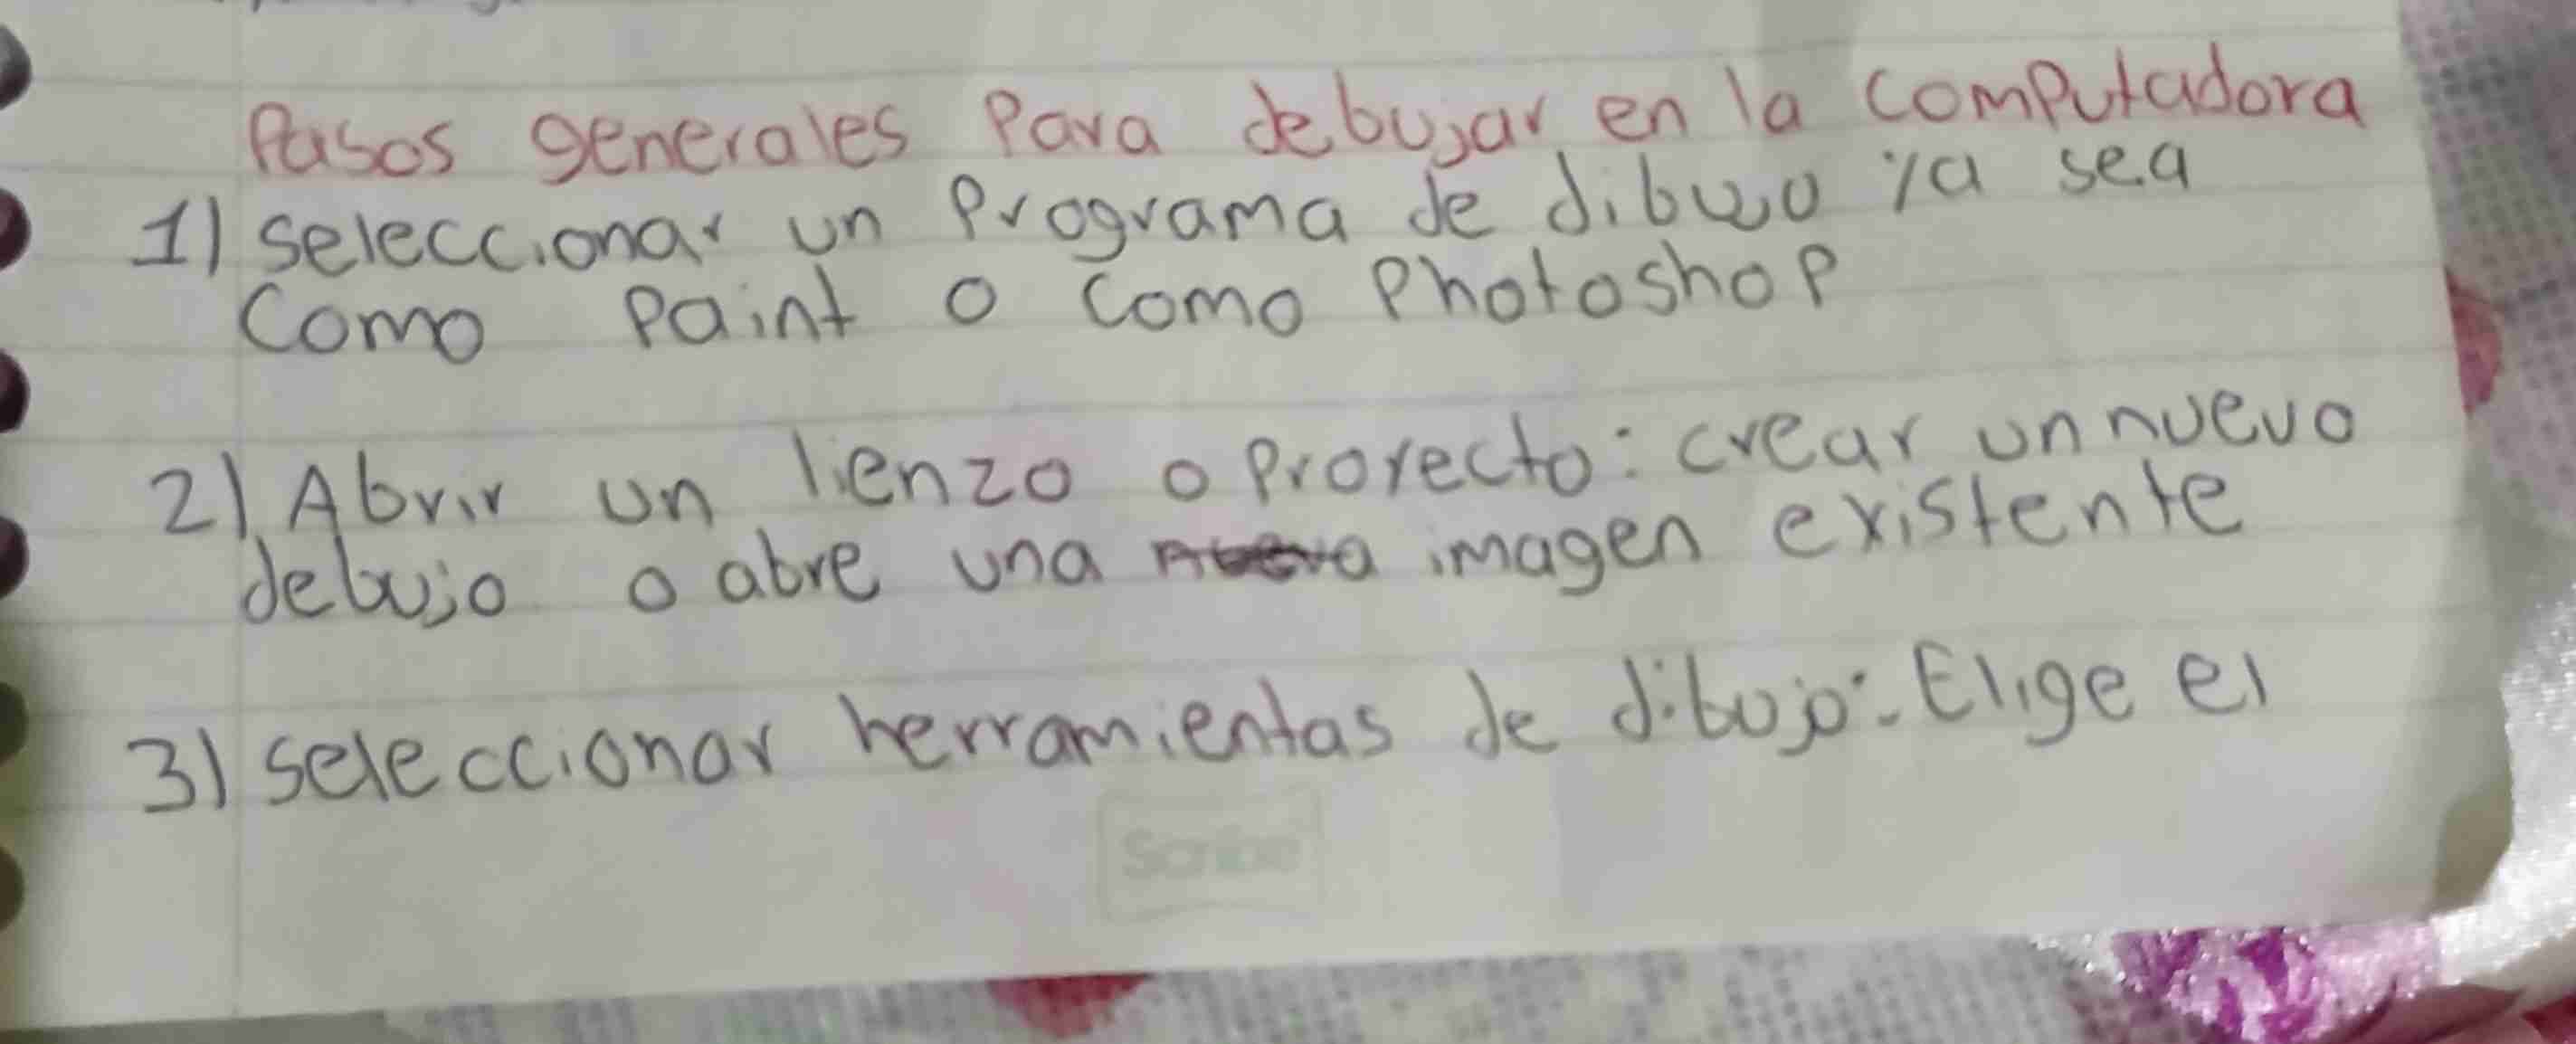 Pasos generales Para debujar en la computadora
1) seleccionar un Programa de dibujo ya sea
Como Paint o como Photoshop
2) Abrir un lienzo o Proyecto: crear un nuevo
debujo o abre una nueva imagen existente
3) seleccionar herramientas de dibujo: Elige el
Scribe